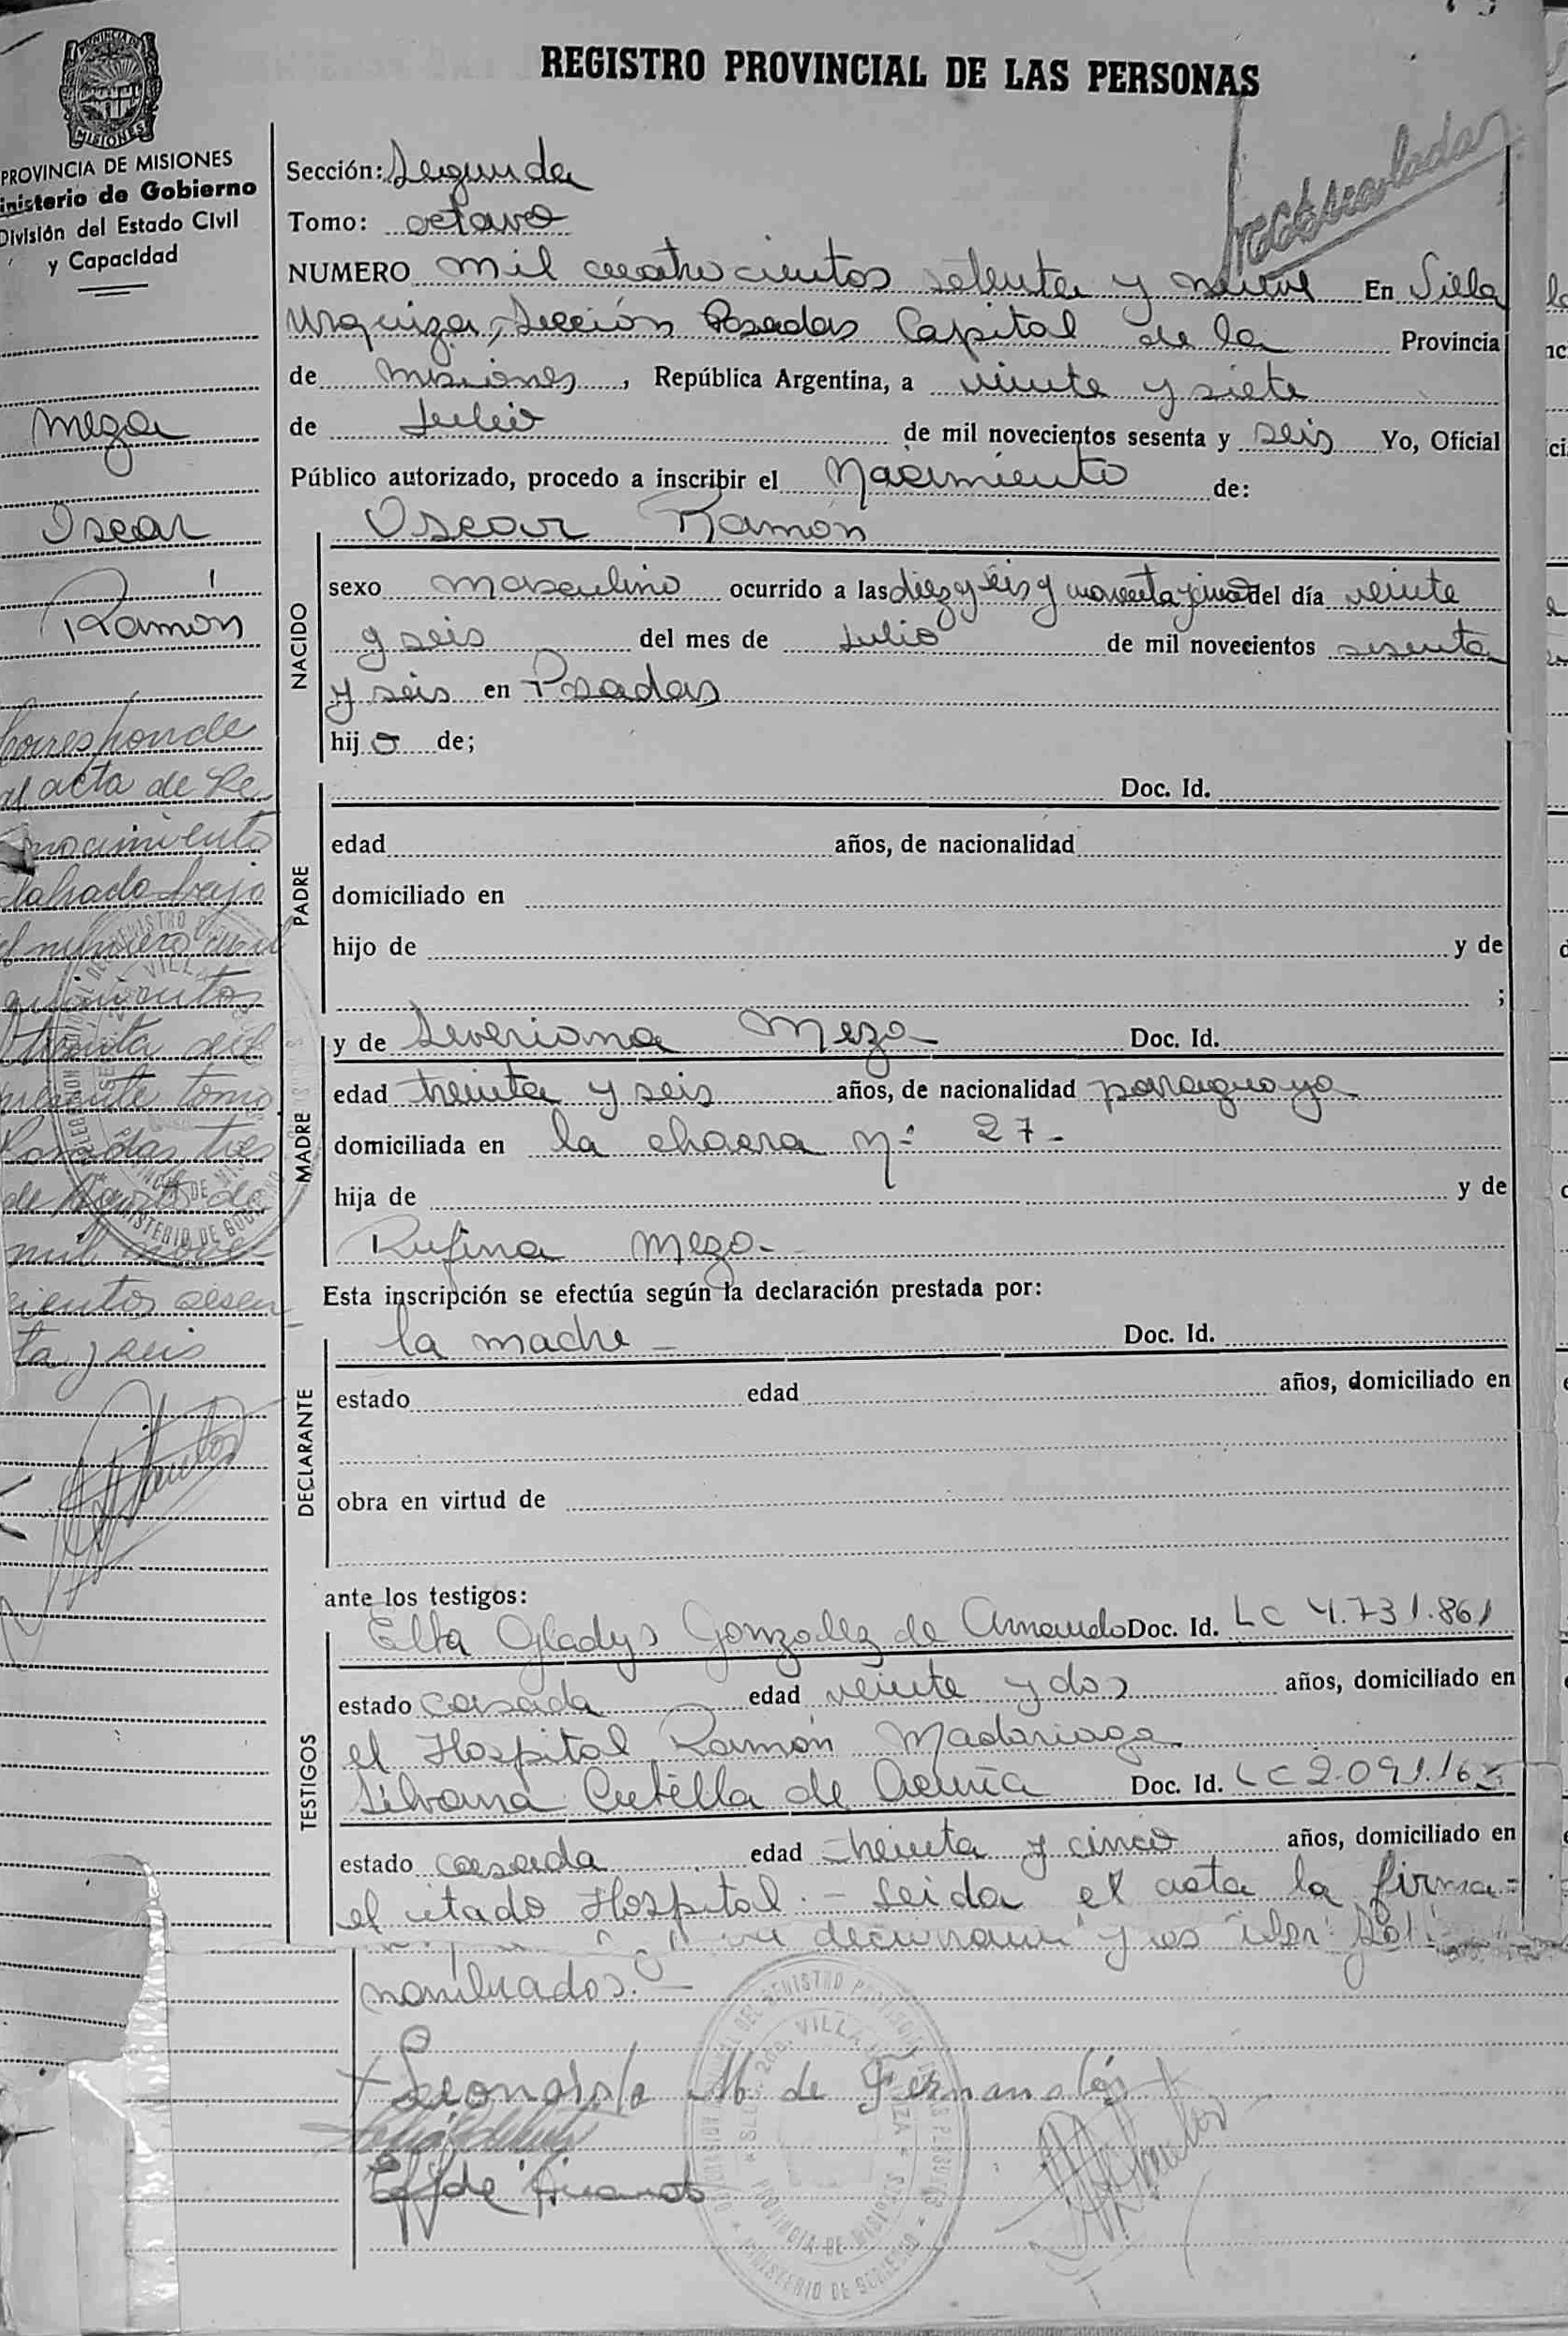 REGISTRO PROVINCIAL DE LAS PERSONAS
PROVINCIA DE MISIONES
MISIONES
PROVINCIA DE MISIONES
inisterio de Gobierno
División del Estado Civil
y Capacidad
Meza
Oscar
Ramón
Corresponde
al acta de Re
nocimiento
labrado bajo
el número mil
quinientos
treinta del
presente tomo
Posadas tres
de Agosto de
mil nove-
cientos sesen
ta y seis
Sección: Segunda
Tomo: octavo
NUMERO mil cuatrocientos setenta y nueve En Villa
Urquiza, Sección Posadas Capital de la Provincia
de Misiones, República Argentina, a veinte y siete
de Julio de mil novecientos sesenta y seis Yo, Oficial
Público autorizado, procedo a inscribir el Nacimiento de:
Oscar Ramón
NACIDO
sexo masculino ocurrido a las diez y seis y cuarenta y cinco del día veinte
y seis del mes de Julio de mil novecientos sesenta
y seis en Posadas
hijo de;
PADRE
Doc. Id.
edad años, de nacionalidad
domiciliado en
hijo de y de
;
MADRE
y de Severiana Meza Doc. Id.
edad treinta y seis años, de nacionalidad paraguaya
domiciliada en la chacra Nº 27-
hija de y de
Rufina Meza-
Esta inscripción se efectúa según la declaración prestada por:
DECLARANTE
la madre - Doc. Id.
estado edad años, domiciliado en
obra en virtud de
ante los testigos:
TESTIGOS
Elba Gladys Gonzalez de Doc. Id. LC 4.731.861
estado casada edad veinte y dos años, domiciliado en
el Hospital Ramón Madariaga
Silvana de Acuña Doc. Id. LC 2.091.16
estado casada edad treinta y cinco años, domiciliado en
el citado Hospital.- Leida el acta la firma=
nombrados.-
M de
VILLA
MINISTERIO DE GOBIERNO
PROVINCIA DE MISIONES